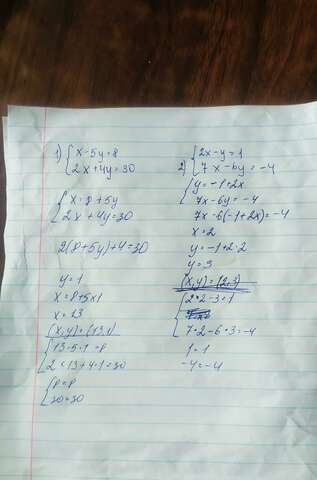 1) { x-5y=8
2x+4y=30
{ x=8+5y
2x+4y=30
2(8+5y)+4=30
y=1
x=8+5×1
x=13
(x,y)=(13,1)
{ 13-5·1=8
2·13+4·1=30
{ 8=8
30=30
2) { 2x-y=1
7x-6y=-4
{ y=-1+2x
7x-6y=-4
7x-6(-1+2x)=-4
x=2
y=-1+2·2
y=3
(x,y)=(2,3)
{ 2·2-3=1
7·2-6·3=-4
1=1
-4=-4